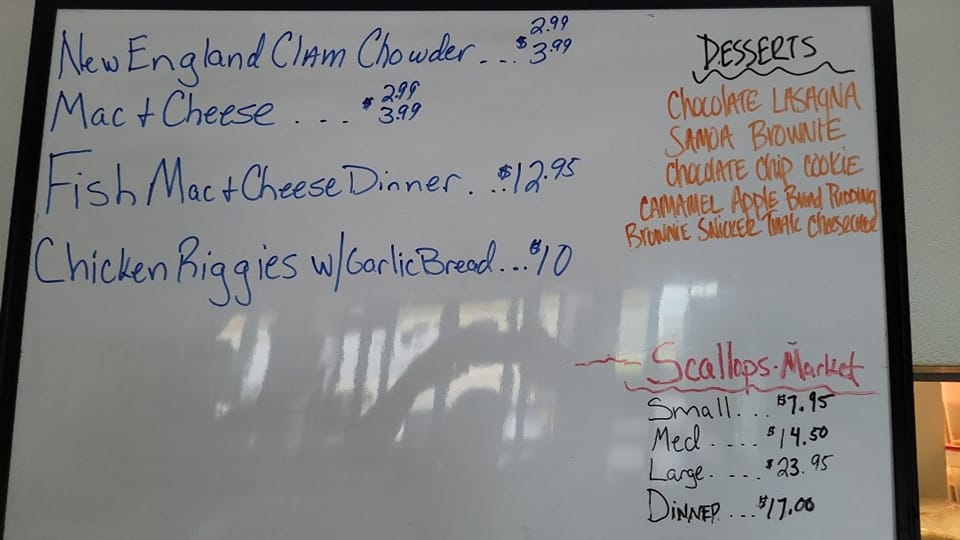 New England Clam Chowder... $ 2.99
3.99
Mac + Cheese .... $ 2.99
3.99
Fish Mac + Cheese Dinner... $12.95
Chicken Riggies w/ Garlic Bread... $10
DESSERTS
Chocolate LASAGNA
SAMOA BROWNIE
Chocolate Chip COOKIE
CAMAMEL Apple Bread Pudding
BROWNIE SNICKER
Scallops-Market
Small... $7.95
Med .... $14.50
Large.... $23.95
DINNER... $17.00